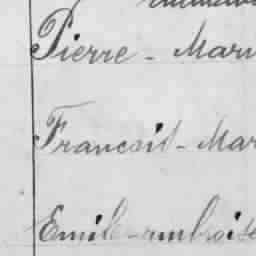 Pierre - Mar
Francois - Mar
Emile-ambroise